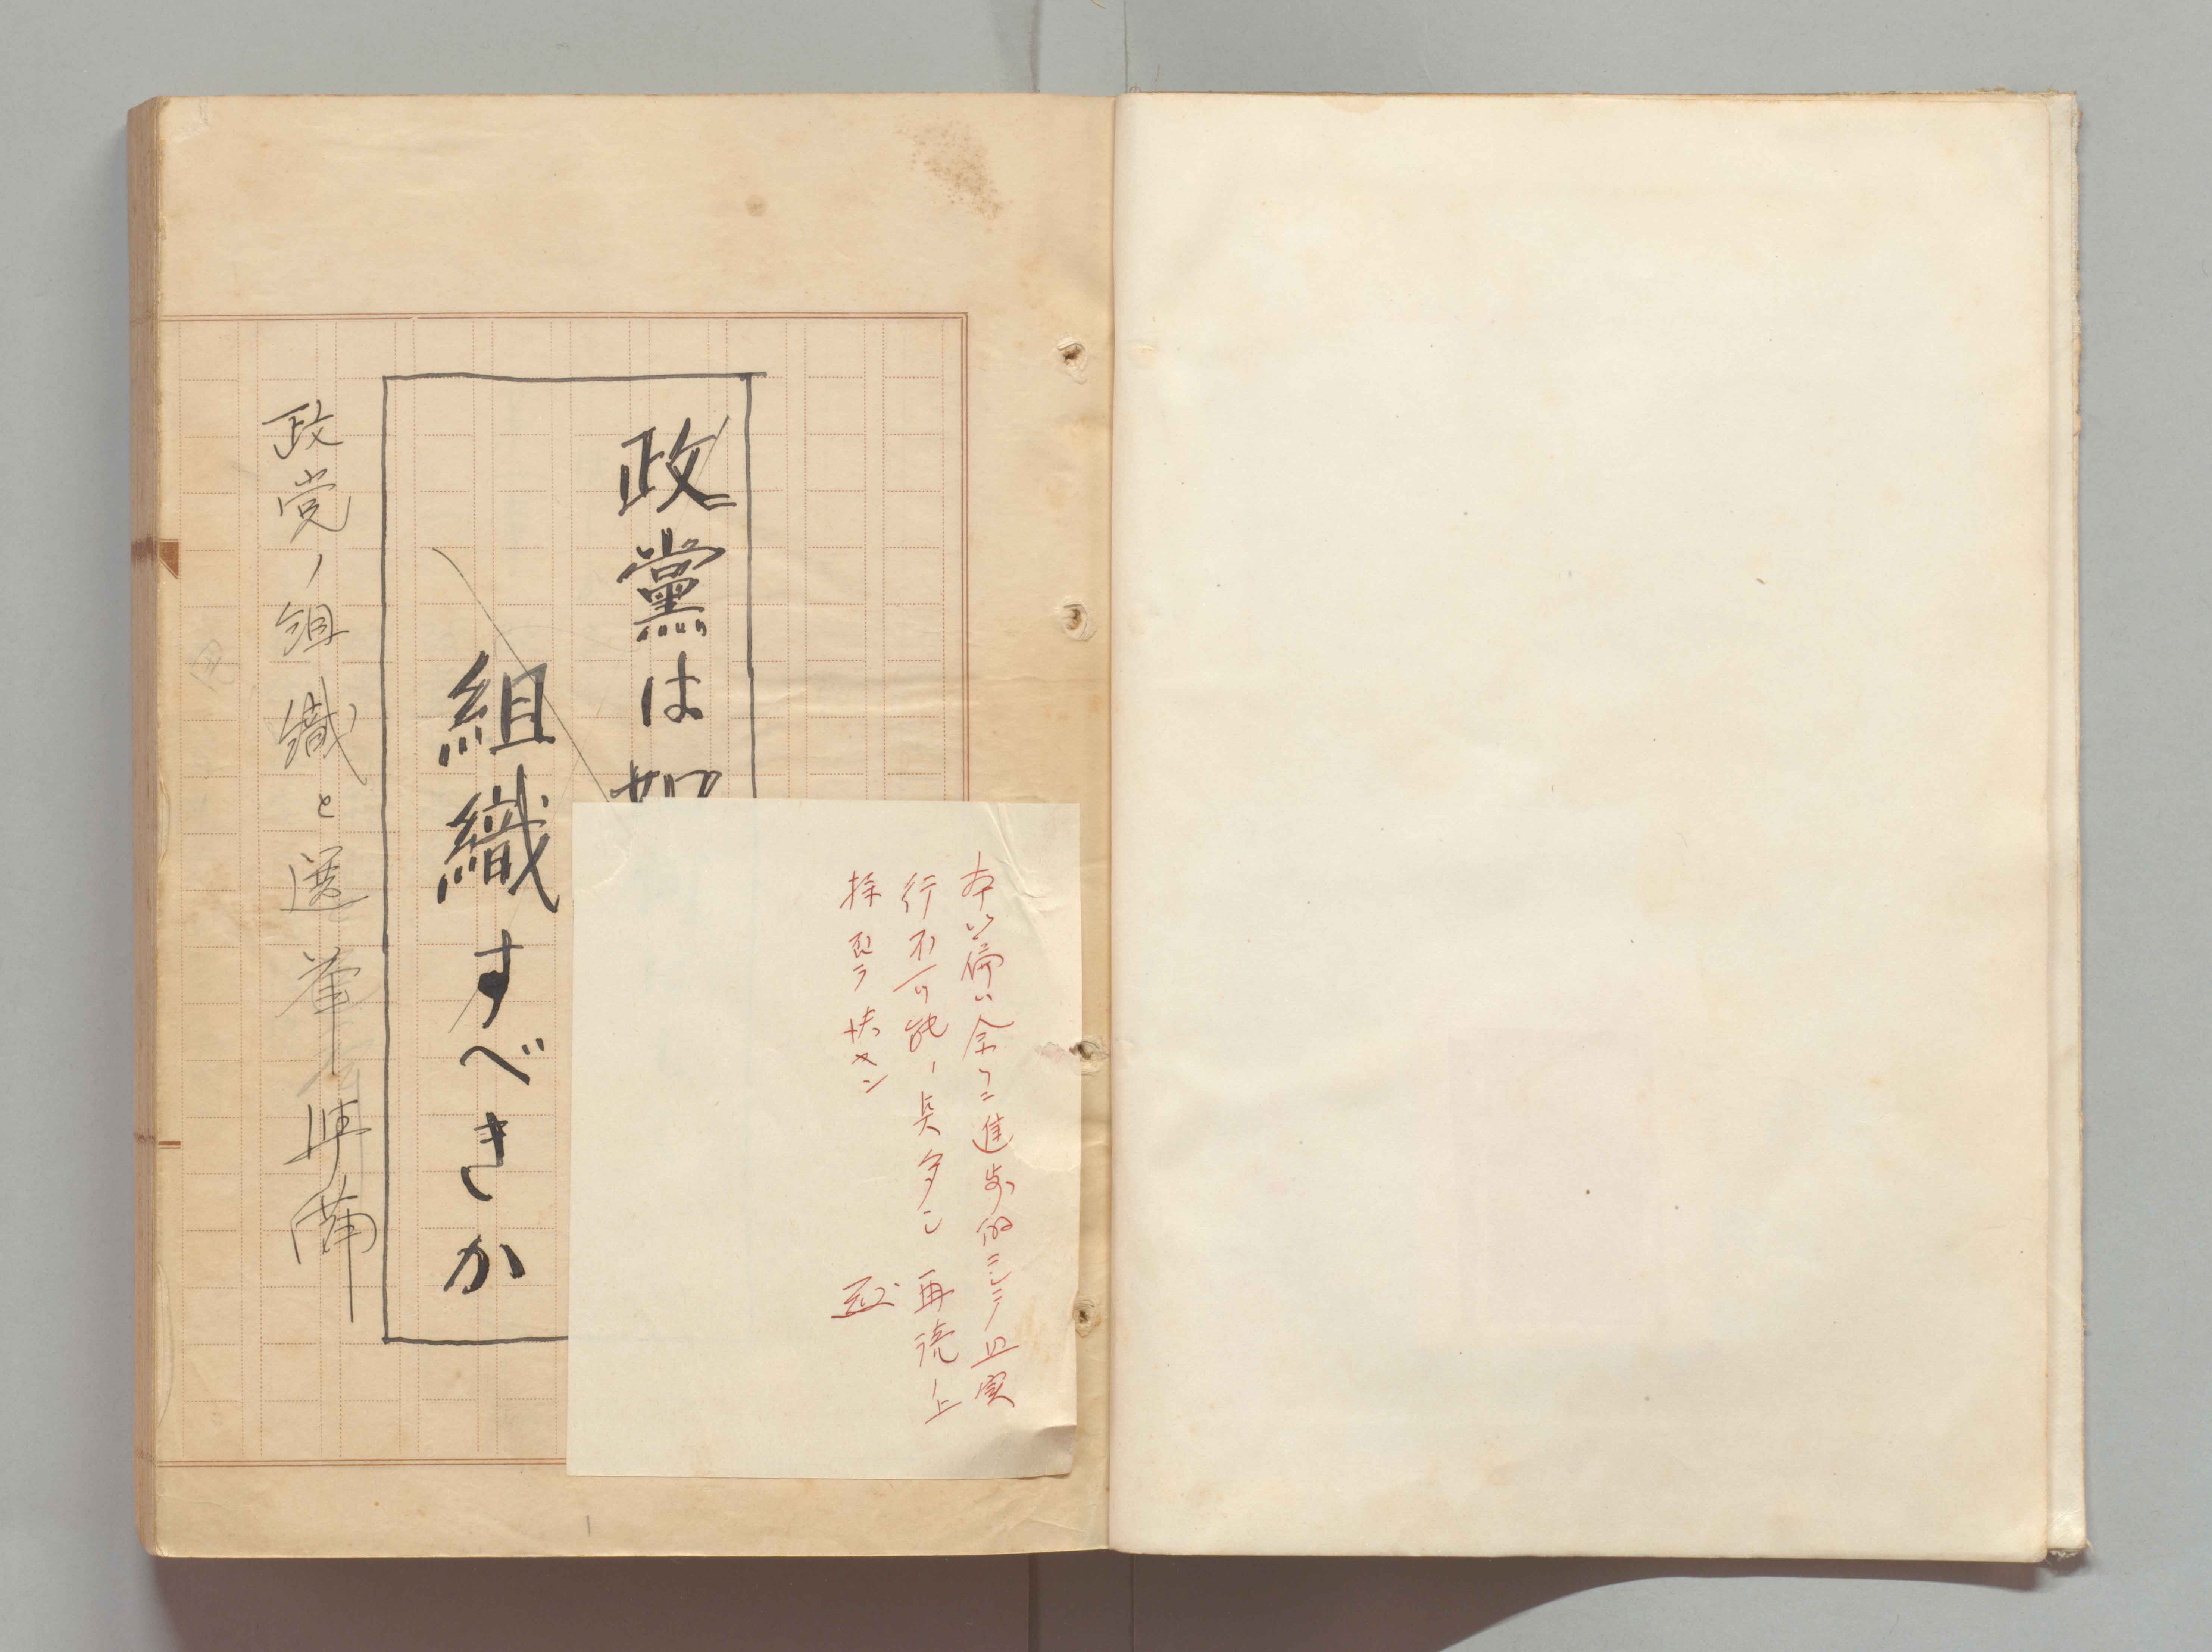 余リニ進歩的ニシテ且実
行不可能ノ点多シ 再読ノ上
採否ヲ決セン
政黨は如
組織すべきか
政党ノ組織と選挙準備